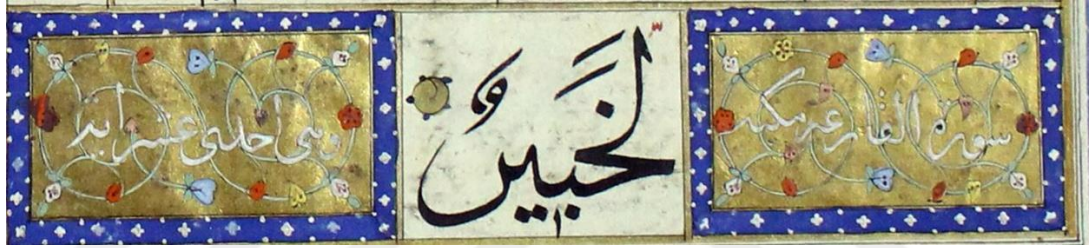 سورة القارعة مكية
لَخَبِيرٌ
وهي احدى عشر اية